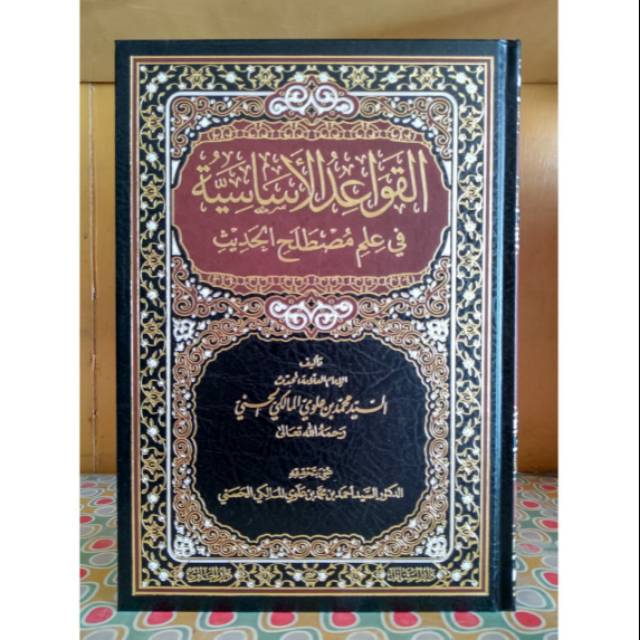 القَوَاعِدُ الأَسَاسِيَّة
فِي عِلْمِ مُصْطَلَحِ الحَدِيْثِ
تأليف
الإمام العلامة المحدث
السيد محمد بن علوي المالكي الحسني
رحمه الله تعالى
الدكتور السيد أحمد بن محمد بن علوي المالكي الحسني